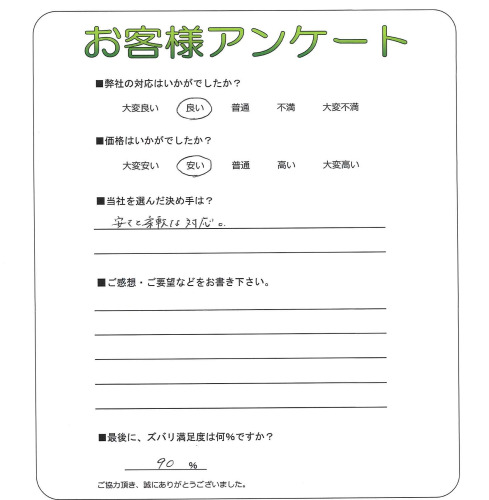 お客様アンケート
■弊社の対応はいかがでしたか？
大変良い 良い 普通 不満 大変不満
■価格はいかがでしたか？
大変安い 安い 普通 高い 大変高い
■当社を選んだ決め手は？
安さと柔軟な対応。
■ご感想・ご要望などをお書き下さい。
■最後に、ズバリ満足度は何％ですか？
90 %
ご協力頂き、誠にありがとうございました。